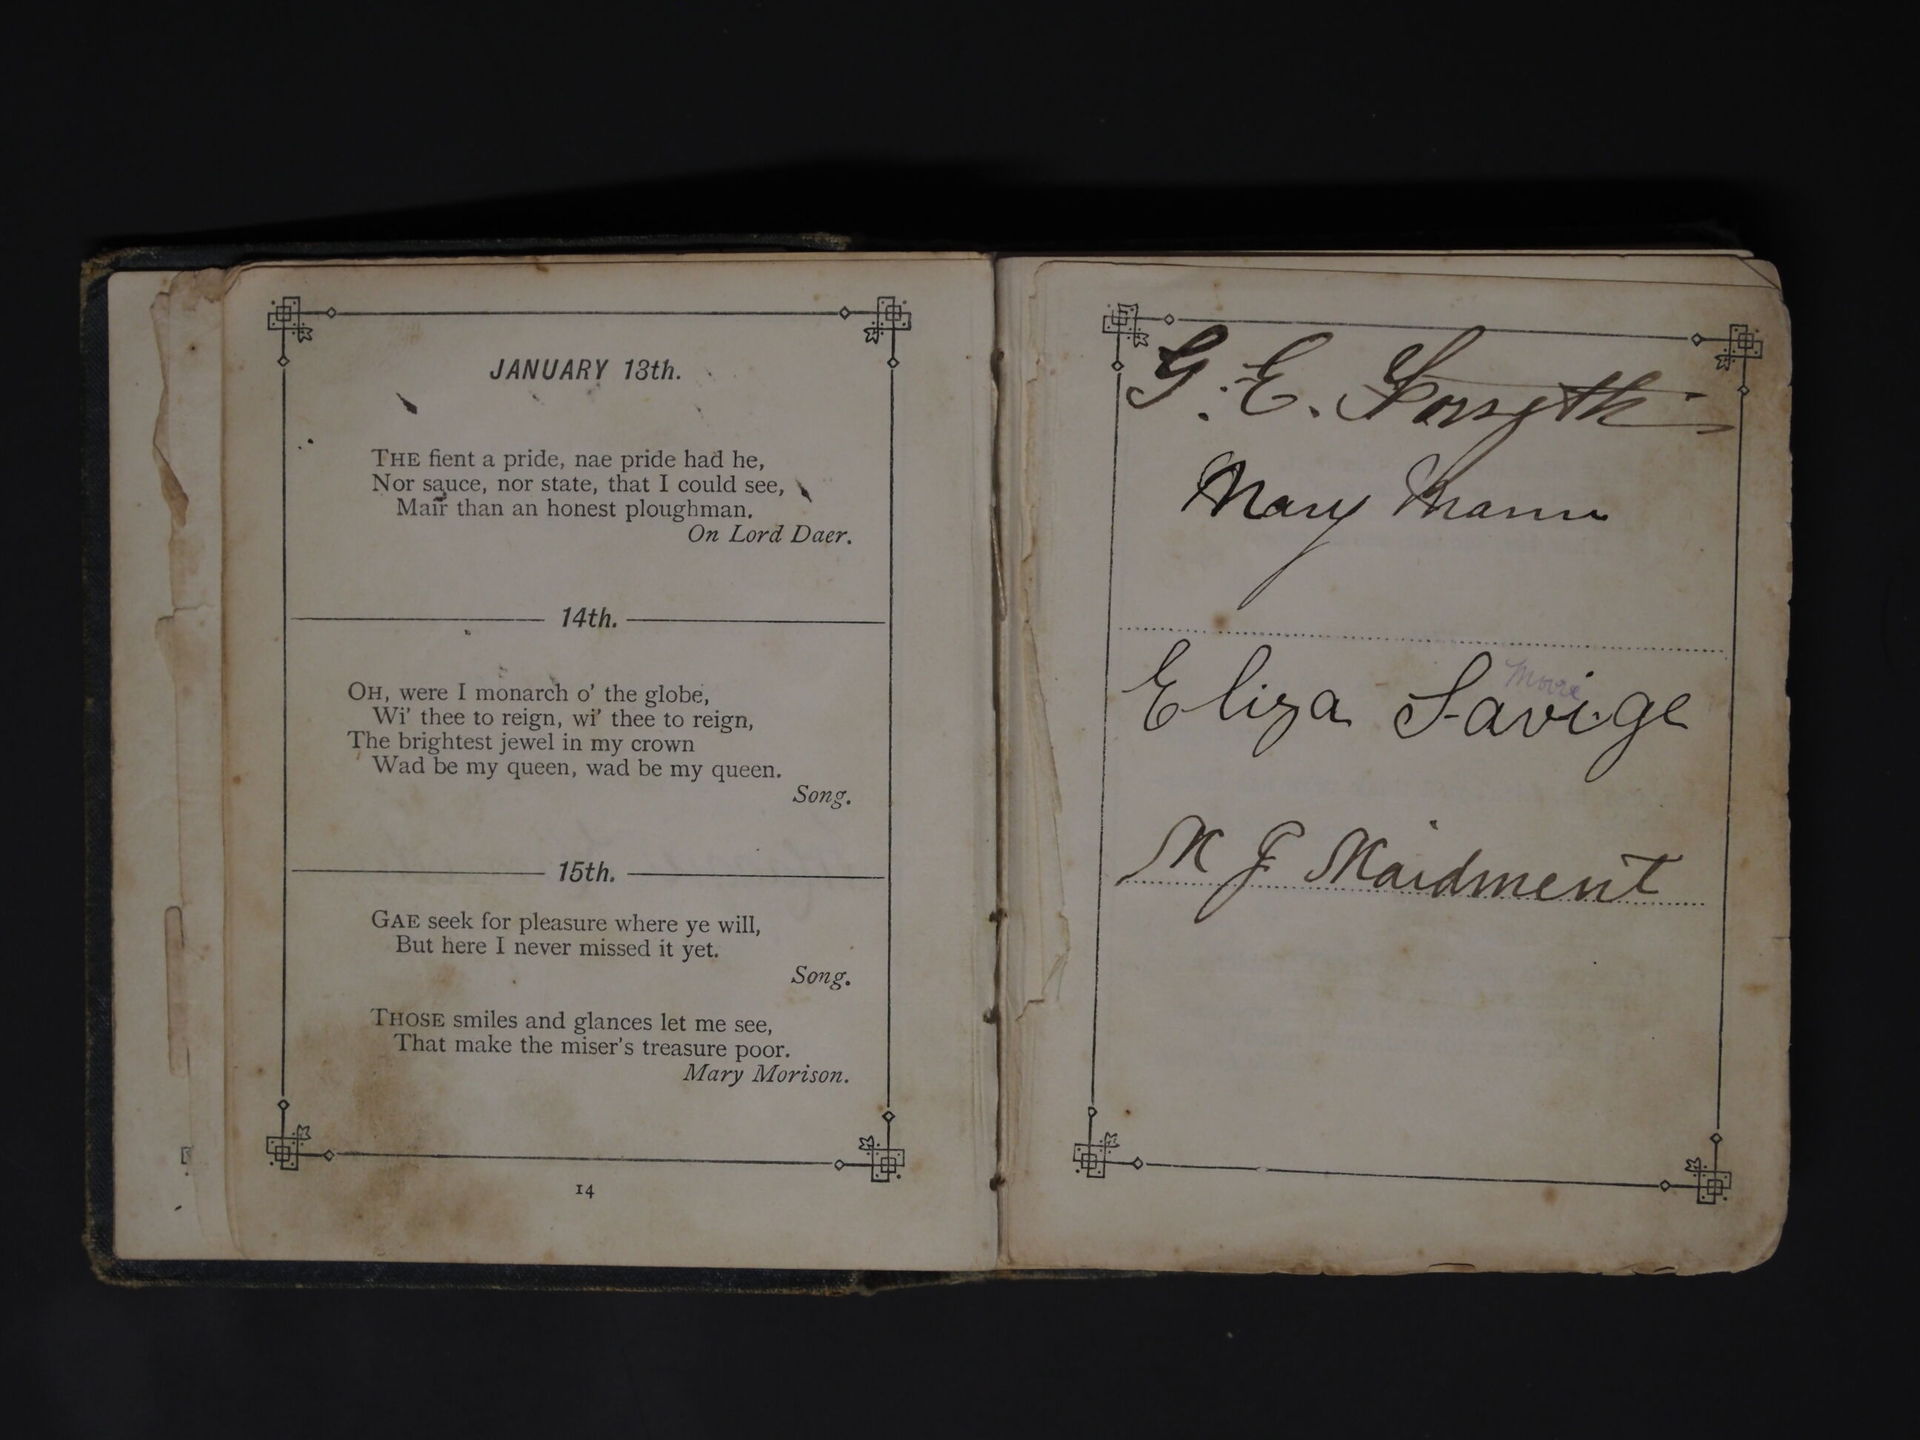 JANUARY 13th.
THE fient a pride, nae pride had he,
Nor sauce, nor state, that I could see,
Mair than an honest ploughman.
On Lord Daer.
14th.
OH, were I monarch o' the globe,
Wi' thee to reign, wi' thee to reign,
The brightest jewel in my crown
Wad be my queen, wad be my queen.
Song.
15th.
GAE seek for pleasure where ye will,
But here I never missed it yet.
Song.
THOSE smiles and glances let me see,
That make the miser's treasure poor.
Mary Morison.
14
G. E. Forsyth
Mary Mann
Moore
Eliza Savige
M J Maidment